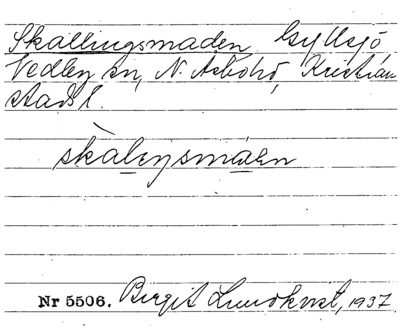 Skallingsmaden, Gyllsjö
Vedby sn, N. Åsbohd, Kristian
stads l.
skàleŋsmàen
Nr 5506. Birgit Lundkvist, 1937